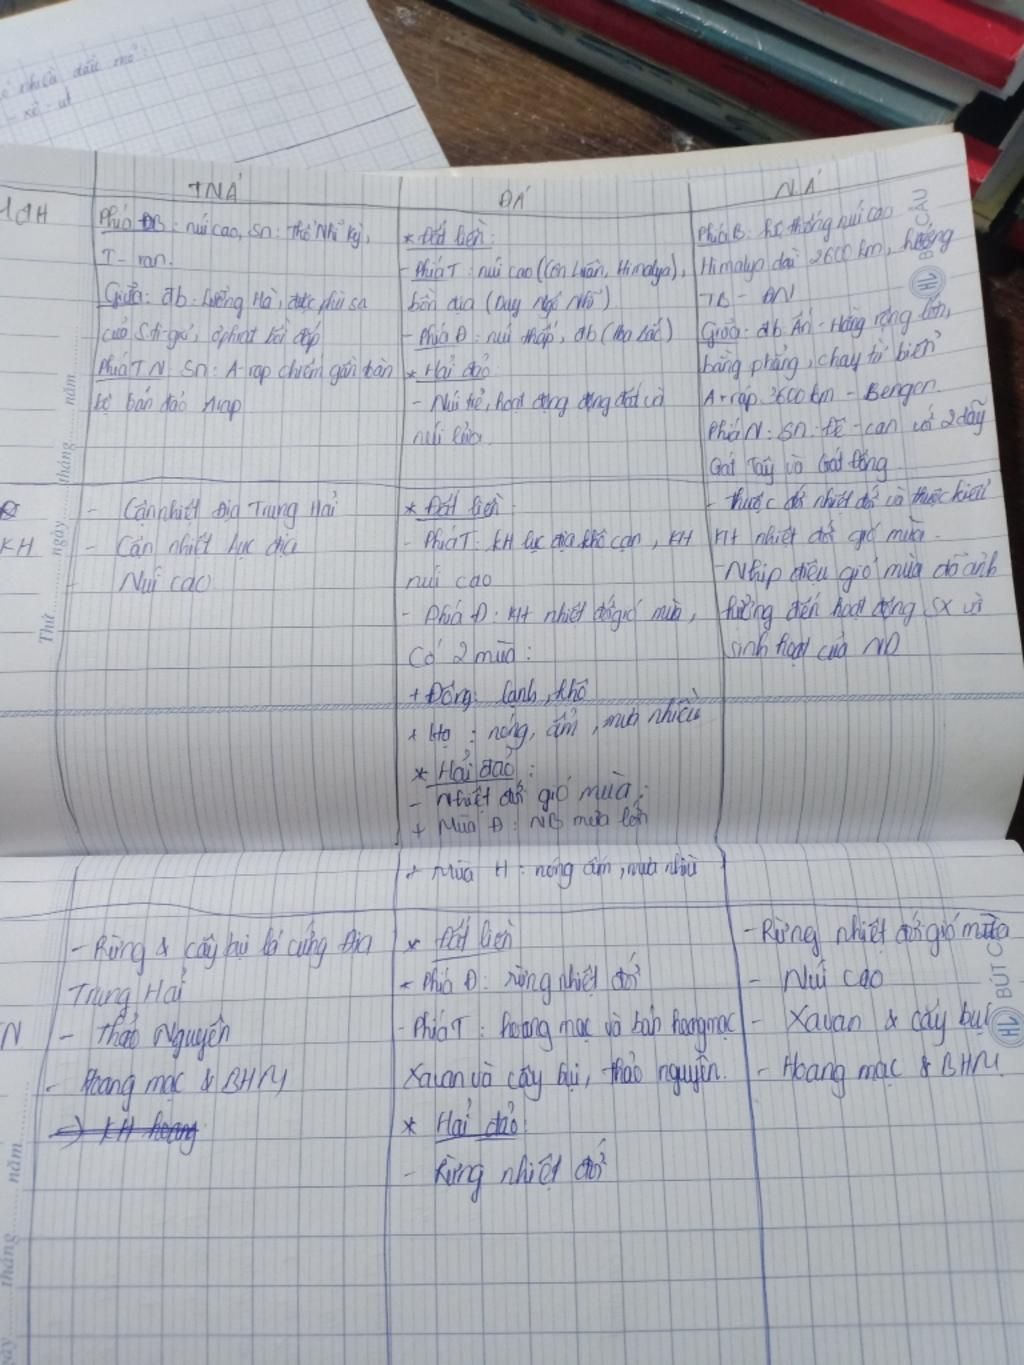 xê - út
TNÁ
ĐÁ
NÁ
ĐH
Phía ĐB: núi cao, Sn: Thổ Nhĩ Kỳ,
I - ran.
Giữa: đb. Lưỡng Hà, được phù sa
của Sti-gơ, ơphrat bồi đắp
Phía TN: Sn: A-rap chiếm gần toàn
bộ bán đảo Arap
* Đất liền:
- Phía T: núi cao (Côn Luân, Himalya),
bồn địa (Duy Ngô Nhĩ)
- Phía Đ: núi thấp, đb (Hoa Bắc)
* Hải đảo
- Núi trẻ, hoạt động động đất và
núi lửa.
Phía B: hệ thống núi cao
Himalya dài 2600km, hướng
TB - ĐN
Giữa: đb. Ấn - Hằng rộng lớn,
bằng phẳng, chạy từ biển
A-rap 3600km - Bengan.
Phía N: Sn: Đê-can với 2 dãy
Gát Tây và Gát Đông
KH
- Cận nhiệt Địa Trung Hải
- Cận nhiệt lục địa
- Núi cao
* Đất liền:
- Phía T: KH lục địa khô cạn, KH
núi cao
- Phía Đ: KH nhiệt đới gió mùa,
Có 2 mùa:
+ Đông: lạnh, khô
+ Hạ: nóng, ẩm, mưa nhiều
* Hải đảo:
- Nhiệt đới gió mùa:
+ Mùa Đ: NB mưa lớn
+ Mùa H: nóng ẩm, mưa nhiều
- Thuộc đới nhiệt đới và thuộc kiểu
KH nhiệt đới gió mùa.
- Nhịp điệu gió mùa đó ảnh
hưởng đến hoạt động SX và
sinh hoạt của ND
N
- Rừng & cây bụi lá cứng Địa
Trung Hải
- Thảo Nguyên
- Hoang mạc & BHM
→ KH hoang
* Đất liền
- Phía Đ: rừng nhiệt đới
- Phía T: hoang mạc và bán hoang mạc
Xavan và cây bụi, thảo nguyên.
* Hải đảo:
- Rừng nhiệt đới
- Rừng nhiệt đới gió mùa
- Núi cao
- Xavan & cây bụi
- Hoang mạc & BHM
Thứ ngày tháng năm
ngày tháng năm